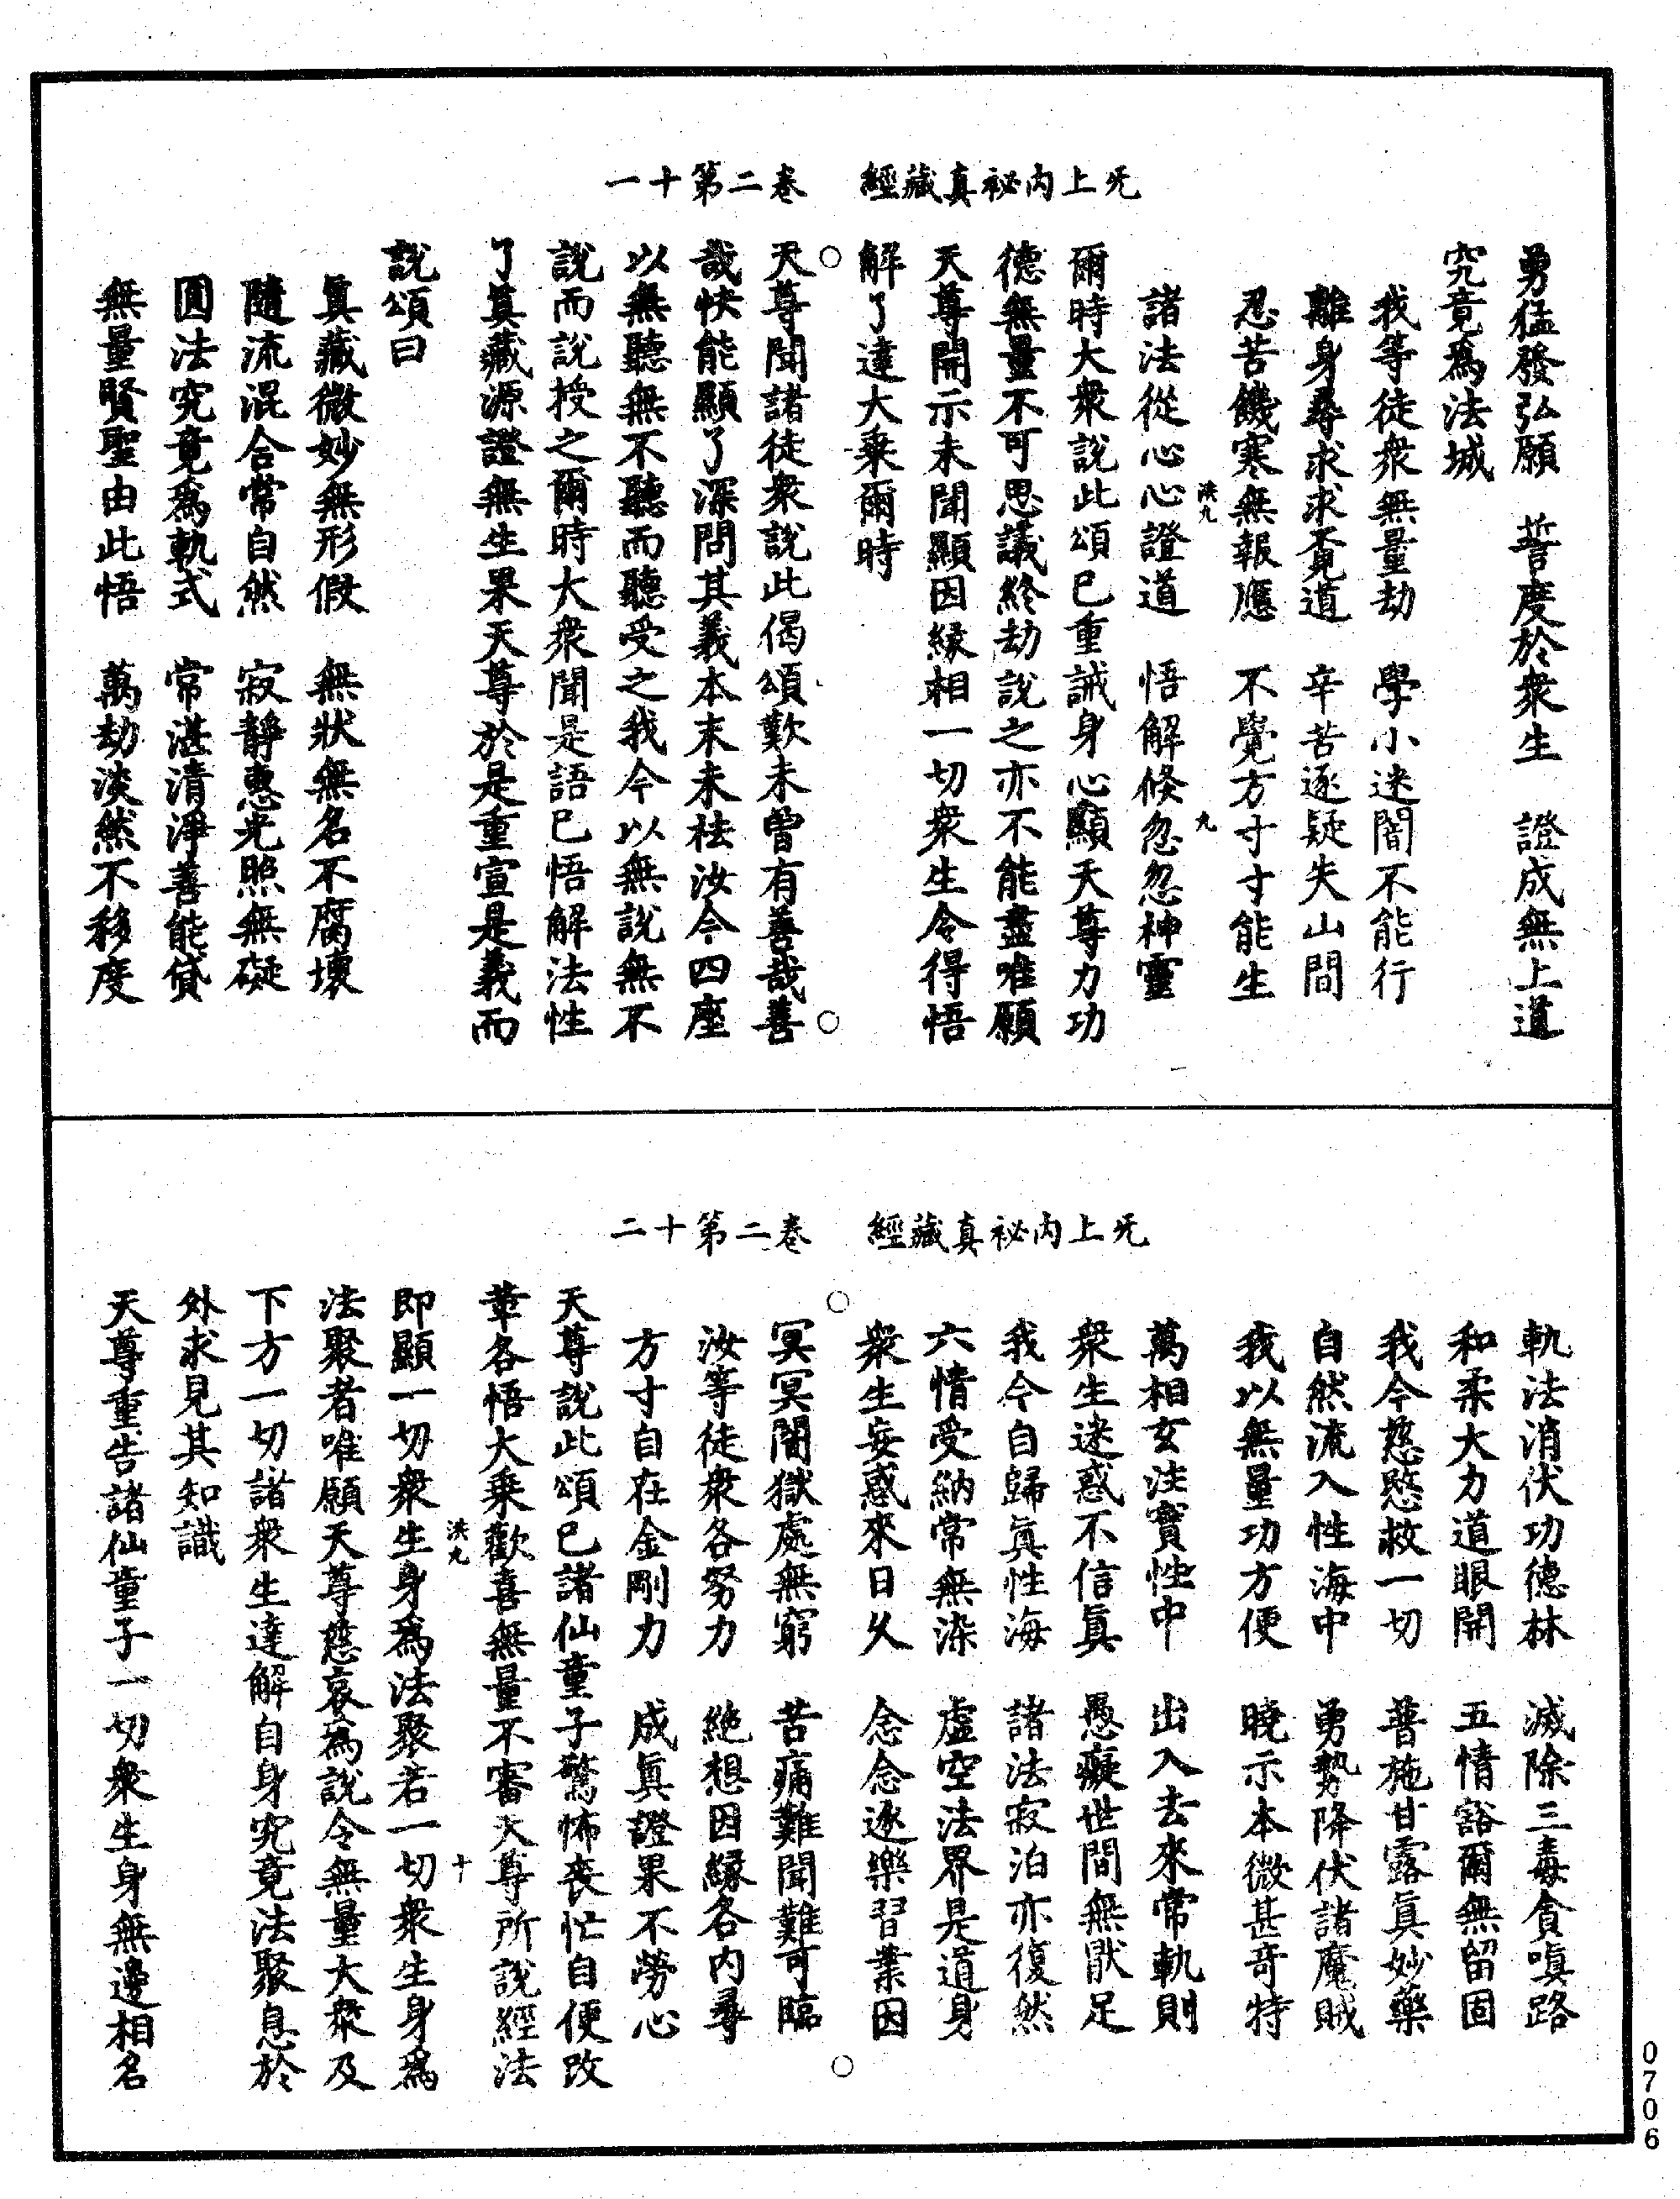 无上內祕真藏經　卷二第十一
勇猛發弘願　誓度於衆生　證成無上道
究竟爲法城
我等徒衆無量劫　學小迷闇不能行
離身尋求求覓道　辛苦逐疑失山間
忍苦饑寒無報應　不覺方寸寸能生
洪九　九
諸法從心心證道　悟解倏忽忽神靈
爾時大衆說此頌已重誡身心顯天尊力功
德無量不可思議終劫說之亦不能盡唯願
天尊開示未聞顯因緣相一切衆生令得悟
解了達大乘爾時
天尊聞諸徒衆說此偈頌歎未曾有善哉善
哉快能顯了深問其義本末未祛汝今四座
以無聽無不聽而聽受之我今以無說無不
說而說授之爾時大衆聞是語已悟解法性
了眞藏源證無生果天尊於是重宣是義而
說頌曰
眞藏微妙無形假　無狀無名不腐壞
隨流混合常自然　寂靜惠光照無礙
圓法究竟爲軌式　常湛清淨善能貸
無量賢聖由此悟　萬劫淡然不移度
无上內祕真藏經　卷二第十二
軌法消伏功德林　滅除三毒貪嗔路
和柔大力道眼開　五情豁爾無留固
我今慈愍救一切　普施甘露眞妙藥
自然流入性海中　勇勢降伏諸魔賊
我以無量功方便　曉示本微甚奇特
萬相玄注寳性中　出入去來常軌則
衆生迷惑不信眞　愚癡世間無猒足
我今自歸眞性海　諸法寂泊亦復然
六情受納常無染　虛空法界是道身
衆生妄惑來日久　念念逐樂習業因
冥冥闇獄處無窮　苦痛難聞難可臨
汝等徒衆各努力　絶想因緣各內尋
方寸自在金剛力　成眞證果不勞心
天尊說此頌已諸仙童子驚怖丧忙自便改
章各悟大乘歡喜無量不審天尊所說經法
洪九　十
即顯一切衆生身爲法聚若一切衆生身爲
法聚者唯願天尊慈哀爲說令無量大衆及
下方一切諸衆生達解自身究竟法聚息於
外求見其知識
天尊重告諸仙童子一切衆生身無邊相名
0706